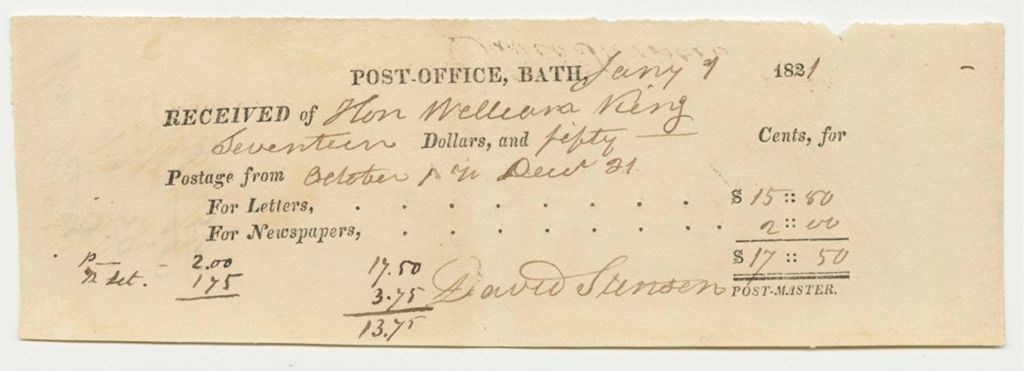 POST-OFFICE, BATH, Jany 1 1821
RECEIVED of Hon William King
Seventeen Dollars, and fifty — Cents, for
Postage from October 1 to Decr 31
For Letters, . . . . . . . . $ 15 :: 50
For Newspapers, . . . . . . . . 2 :: 00
$ 17 :: 50
2.00 17.50
175 3.75 David Stinson POST-MASTER.
13.75